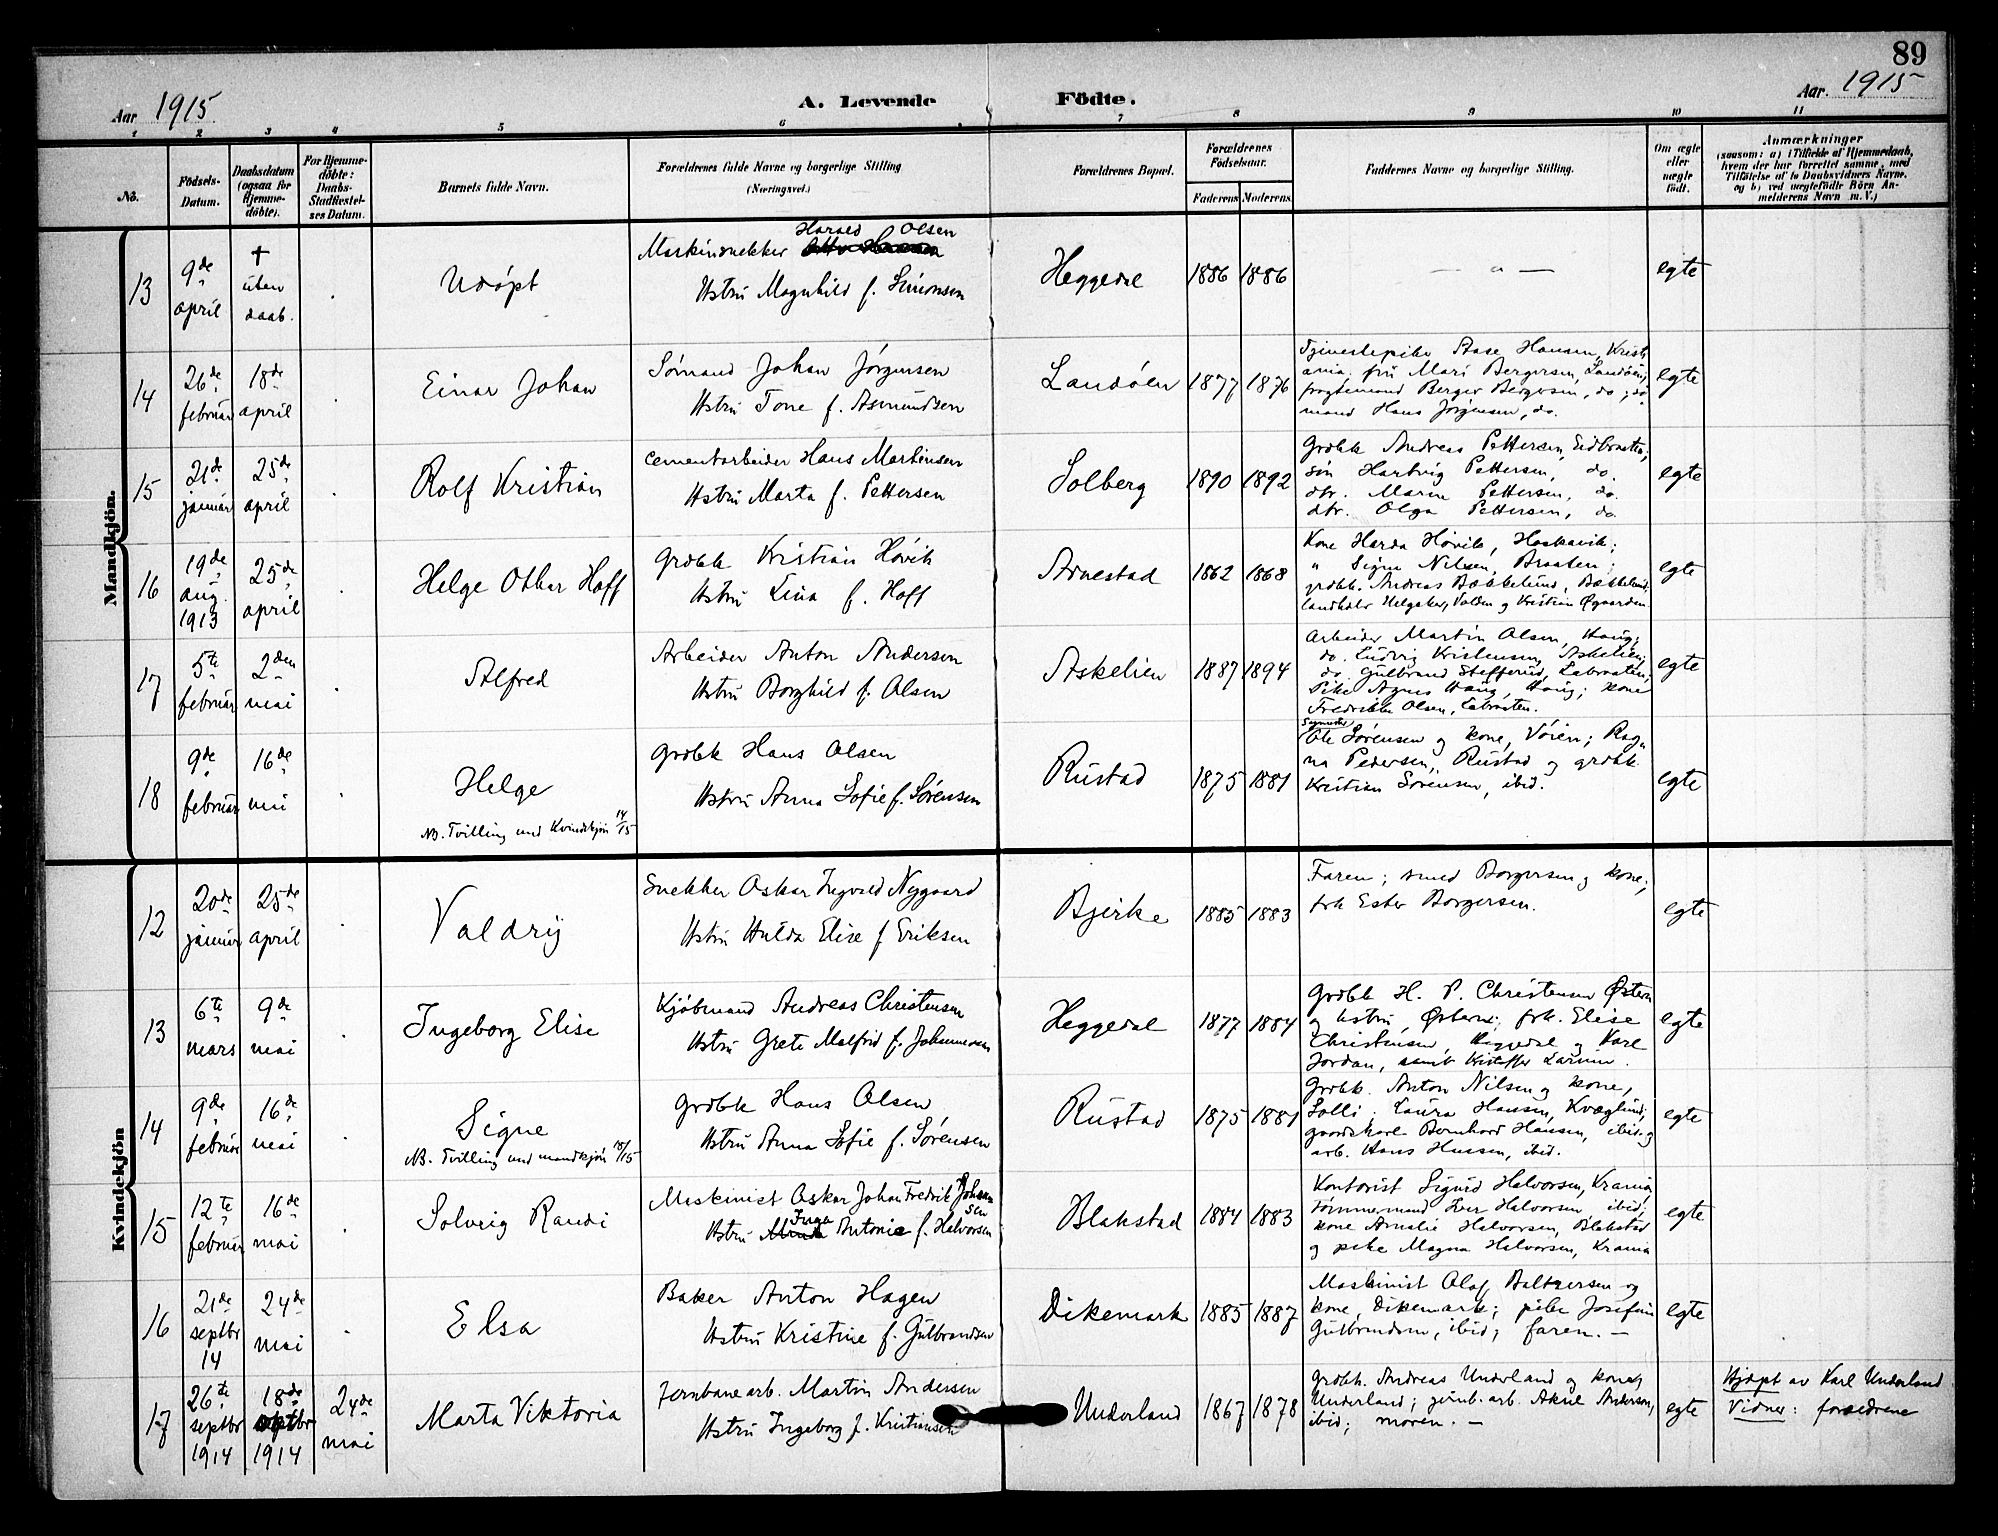 89
Aar 1915.
A. Levende Födte.
Aar. 1915
1 2 3 4 5 6 7 8 9 10 11
No.
Födsels-Datum.
Daabsdatum (ogsaa for Hjemme-döbte).
For Hjemme-döbte: Daabs-Stadfæstel-ses Datum.
Barnets fulde Navn.
Forældrenes fulde Navne og borgerlige Stilling
(Næringsvei.)
Forældrenes Bopæl.
Forældrenes Födselsaar.
Faderens Moderens
Faddernes Navne og borgerlige Stilling.
Om ægte eller uægte födt.
Anmærkninger
(saasom: a) i Tilfælde af Hjemmedaab, hvem der har forrettet samme, med Tilföielse af to Daabsvidners Navne, og b) ved uægtefödte Börn Anmelderens Navn m. V.)
Mandkjön.
13 9de april † uten daab. Udøpt
Maskinsnekker Harald Olsen
Hstru Magnhild f. Simonsen
Heggedal 1886 1886 — " — egte
14 26de februar 18de april Einar Johan
Sømand Johan Jørgensen
Hstru Tone f. Asmundsen
Landøen 1877 1876
Tjenestepike Aase Hansen, Kristi
ania. fru Mari Bergersen, Landøen;
fragtemand Berger Bergersen, do; sø
mand Hans Jørgensen, do.
egte
15 21de januar 25de april Rolf Kristian
Cementarbeider Hans Martinsen
Hstru Marta f. Pettersen
Solberg 1890 1892
Grdbk Andreas Pettersen,
søn Hartvig Pettersen, do.
dtr. Marie Pettersen, do.
dtr. Olga Pettersen, do.
egte
16 19de aug. 1913 25de april Helge Othar Hoff
Grdbk Kristian Høvik
Hstru Lina f. Hoff
Arnestad 1862 1868
Kone Harda Høvik,
" Signe Nilsen, Braaten;
grdbk. Andreas Bækkelund, Bækkelund
landhdlr Helgaker, Valden og Kristian Øgaarden
egte
17 5te februar 2den mai Alfred
Arbeider Anton Andersen
Hstru Borghild f. Olsen
Askelien 1887 1894
Arbeider Martin Olsen, Haug;
do. Ludvig Kristensen, Askelien;
do. Gulbrand Stefferud, Labraaten;
Pike Agnes Haug, Haug; kone
Fredrikke Olsen, Labraaten.
egte
18 9de februar 16de mai Helge
NB. Tvilling med Kvindekjøn 14/15
Grdbk Hans Olsen
Hstru Anna Sofie f. Sørensen
Rustad 1875 1881
Ole Sørensen og kone, Vøien; Rag
na Pedersen, Rustad og grdbk
Kristian Sørensen, ibid.
egte
Kvindekjön
12 20de januar 25de april Valdrij
Snekker Oskar Ingvald Nygaard
Hstru Hulda Elise f Eriksen
Bjerke 1885 1883
Faren; smed Borgersen og kone;
frk Ester Borgersen.
egte
13 6te mars 9de mai Ingeborg Elise
Kjøbmand Andreas Christensen
Hstru Grete Malfrid f. Johannessen
Heggedal 1877 1884
Grdbk H. P. Christensen Østern
og hstru, Østern; frk. Elise
Christensen, Heggedal og Karl
Jordan, samt Kristoffer
egte
14 9de februar 16de mai Signe
NB. Tvilling med mandkjøn 18/15
Grdbk Hans Olsen
Hstru Anna Sofie f. Sørensen
Rustad 1875 1881
Grdbk. Anton Nilsen og kone,
Solli; Laura Hansen, Kvæglund;
gaardskarl Bernhard Hansen, ibid. og
arb. Hans Hansen, ibid.
egte
15 12te februar 16de mai Solveig Randi
Maskinist Oskar Johan Fredrik Johan
sen
Hstru Inga Antonie f. Halvorsen
Blakstad 1884 1883
Kontorist Sigurd Halvorsen, Krania
Tømmermand Iver Halvorsen, ibid;
kone Amalie Halvorsen, Blakstad
og pike Magna Halvorsen, Krania
egte
16 21de septbr 14 24de mai Elsa
Baker Anton Hagen
Hstru Kristine f. Gulbrandsen
Dikemark 1885 1887
Maskinist Olaf Baltzersen og
kone, Dikemark; pike Josefine
Gulbrandsen, ibid; faren. —
egte
17 26de septbr 1914 18de septbr 1914 24de mai Marta Viktoria
Jernbanearb. Martin Andersen
Hstru Ingeborg f. Kristiansen
Underland 1867 1878
grdbk. Andreas Underland og kone,
Underland; jernb. arb. Aksel Andersen,
ibid; moren. —
egte
Hjdøpt av Karl Underland
Vidner: forældrene